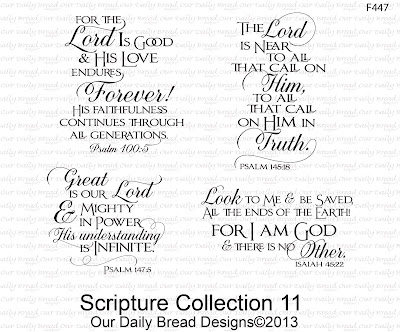 F447
FOR THE
Lord IS GOOD
& HIS LOVE
ENDURES
Forever!
HIS FAITHFULNESS
CONTINUES THROUGH
ALL GENERATIONS.
Psalm 100:5
THE Lord
IS NEAR
TO ALL
THAT CALL ON
Him,
TO ALL
THAT CALL
ON HIM IN
Truth.
PSALM 145:18
Great
IS OUR Lord
& MIGHTY
IN POWER
His understanding
IS INFINITE.
PSALM 147:5
Look TO ME & BE SAVED,
ALL THE ENDS OF THE EARTH!
FOR I AM GOD
& THERE IS NO
Other.
ISAIAH 45:22
Scripture Collection 11
Our Daily Bread Designs©2013